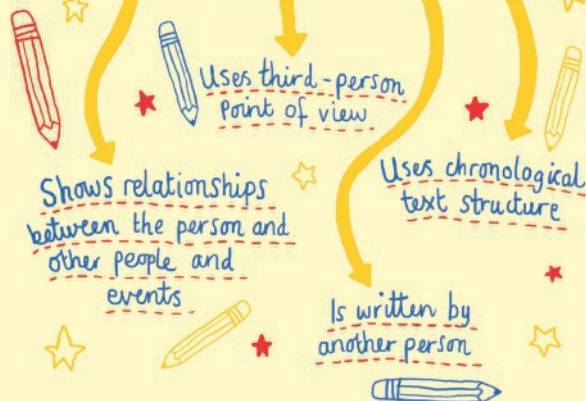 Uses third-person
Point of view
Shows relationships
between the person and
other people and
events
Uses chronological
text structure
Is written by
another person